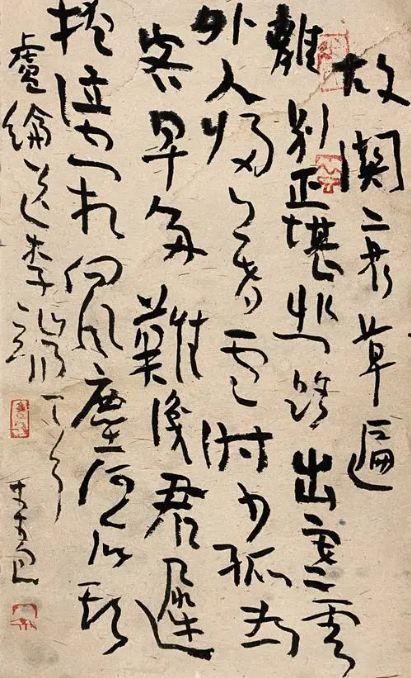 故關衰草遍
離別正堪悲路出寒雲
外人歸暮雪时少孤為
客早多難識君遲
掩淚空相向風塵何處期
盧綸送李端